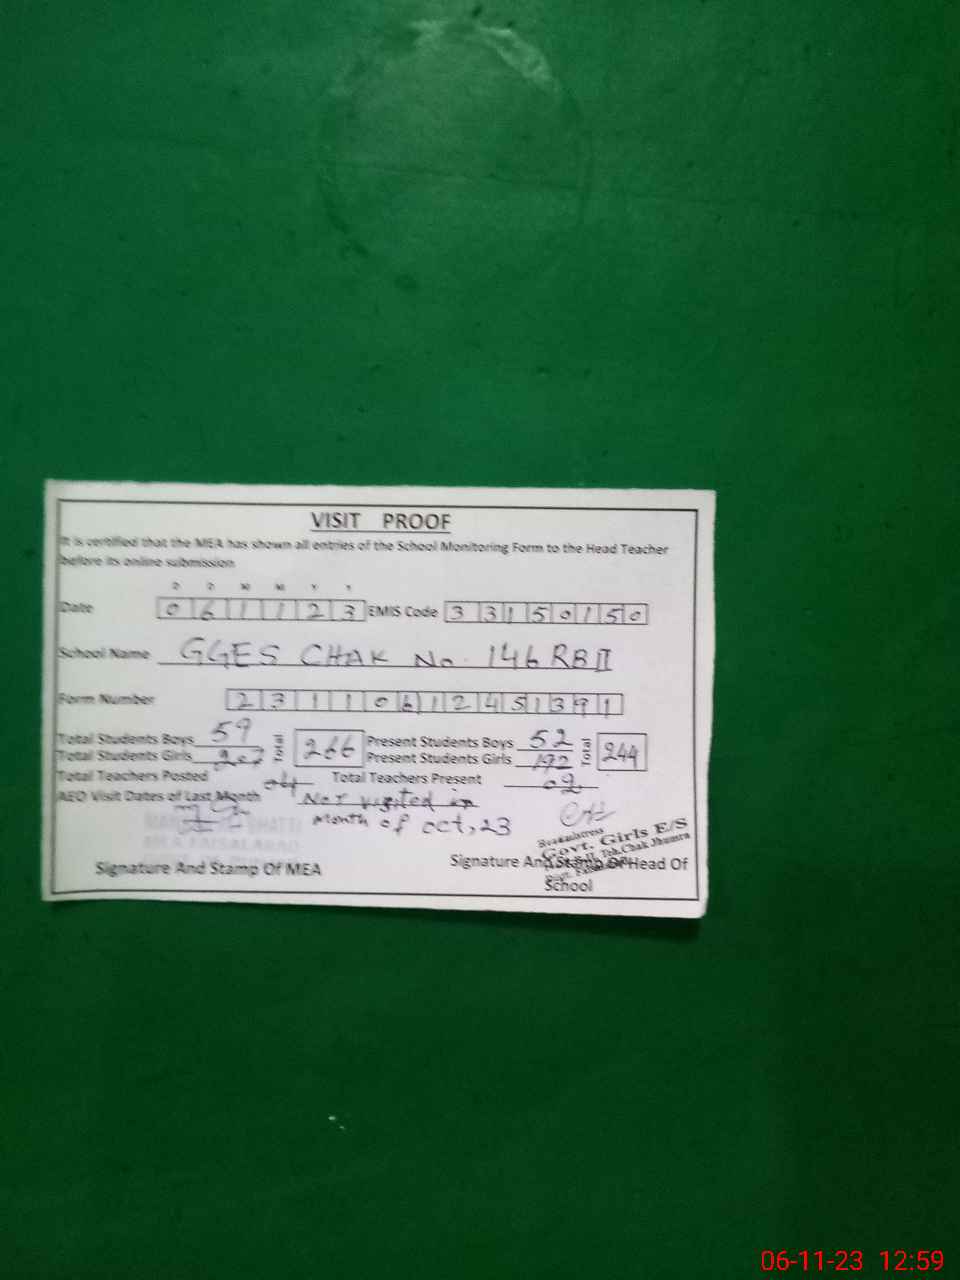 VISIT PROOF
It is certified that the MEA has shown all entries of the School Monitoring Form to the Head Teacher
before its online submission
D D M M Y Y
Date 0 6 1 1 2 3 EMIS Code 3 3 1 5 0 1 5 0
School Name GGES CHAK No. 146 RB II
Form Number 2 3 1 1 0 6 1 2 4 5 1 3 9 1
Total Students Boys 59 266 Present Students Boys 52 244
Total Students Girls 207 Present Students Girls 192
Total Teachers Posted 04 Total Teachers Present 02
AEO Visit Dates of Last Month Not visited in
month of oct, 23
BHATTI
MEA FAISALABAD
Headmistress
Govt. Girls E/S
Teh. Chak Jhumra
Signature And Stamp Of MEA
Signature And Stamp Of Head Of
School
06-11-23 12:59